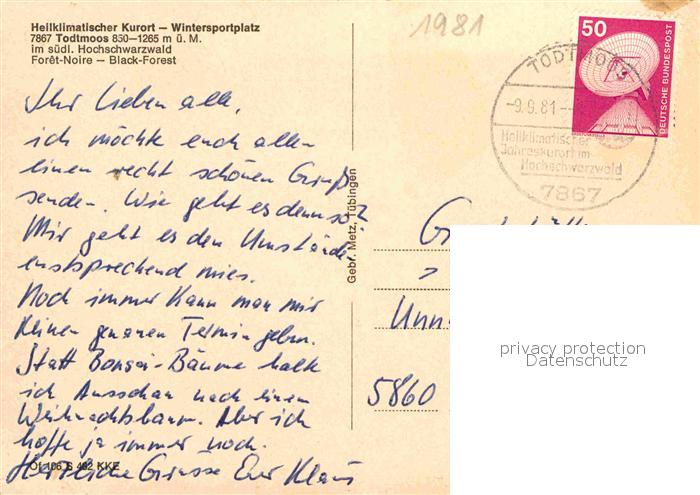 Heilklimatischer Kurort – Wintersportplatz
7867 Todtmoos 850–1265 m ü. M.
im südl. Hochschwarzwald
Forêt-Noire – Black-Forest
Ihr Lieben alle,
ich möchte euch allen
einen recht schönen Gruß
senden. Wie geht es denn so?
Mir geht es den Umständen
enstsprechend mies.
Noch immer kann man mir
keinen genauen Termin geben.
Statt Bonsai-Bäume halte
ich Ausschau nach einem
Weihnachtsbaum. Aber ich
hoffe ja immer noch.
Herzliche Grüsse Euer Klaus
Of 106 S 492 KKE
Gebr. Metz, Tübingen
1981
50
DEUTSCHE BUNDESPOST
TODTMOOS
-9.9.81-
Heilklimatischer
Jahreskurort im
Hochschwarzwald
7867
G
Unn
5860
privacy protection
Datenschutz